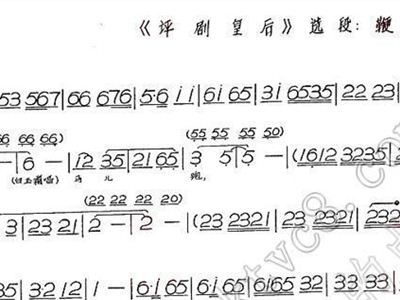 《评剧皇后》选段:鞭
53 567|66 676|5·6 i i|6i 65|3i 6535|22 23|
66 66 66) (55 55 55 50)
— |6 — |12 35|2165|3 5|5 — |(1612 3235|2
(白玉霜唱) 马 儿 跑,
(22 22 22 20)
3|23 21|2 — |2 — |(23 2321|23 2321|232
35|32 12|1 — |6·i 65|6·i 65|6i65 32|33 33|
ktvc8.com